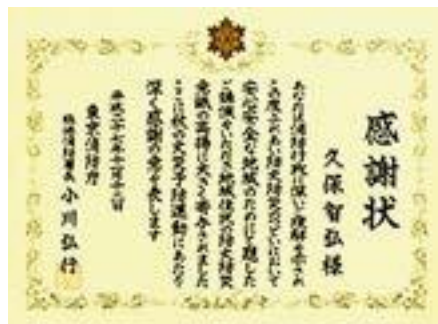 感謝状
久保智弘様
あなたは消防行政に深い理解を示され
この度
安心安全な地域のために
ご講演をいただき地域住民の防火防災
意識の高揚に大きく寄与されました
ここに秋の火災予防運動にあたり
深く感謝の意を表します
平成二十七年十一月十二日
東京消防庁
消防署長 小川弘行